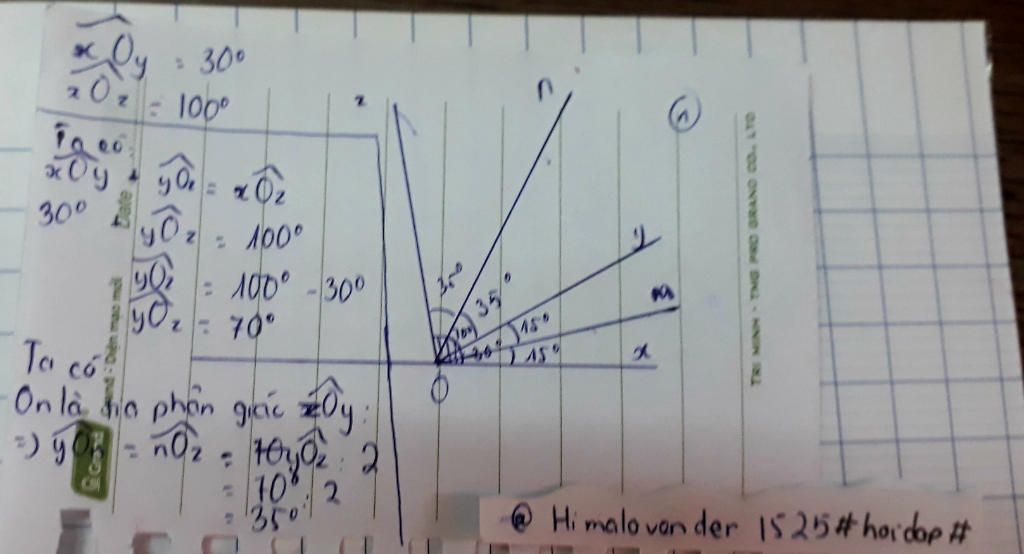 xOy = 30°
xOz = 100°
Ta có:
xOy + yOz = xOz
30° + yOz = 100°
yOz = 100° - 30°
yOz = 70°
Ta có
On là tia phân giác zOy:
=) yOn = nOz = yOz : 2
= 70° : 2
= 35°
z
n
y
m
x
O
35°
35°
100°
15°
30°
15°
Date
TRI MINH - TMG PRO GRAND CO., LTD
@ Himalovonder 1525#hoidap#